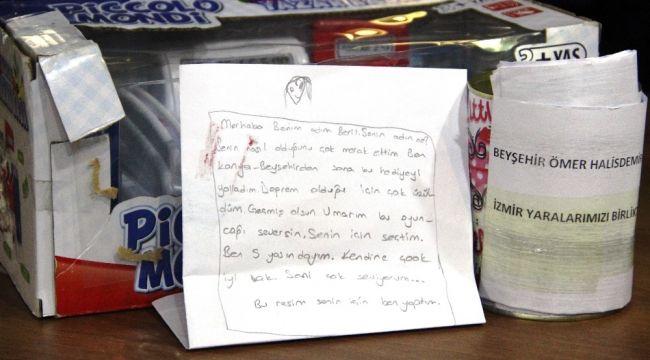 PICCOLO
MONDI
Merhaba Benim adım Beril. Senin adın ne?
Senin nasıl olduğunu çok merak ettim Ben
Konya-Beyşehirden sana bu hediyeyi
yolladım Deprem olduğu için çok üzül
düm. Geçmiş olsun Umarım bu oyun-
cağı seversin. Senin için seçtim.
Ben 5 yaşındayım. Kendine çook
iyi bak. Seni çok seviyorum...
Bu resim senin için ben yaptım.
2+YAŞ
BEYŞEHİR ÖMER HALİSDEMİR
İZMİR YARALARIMIZI BİRLİK